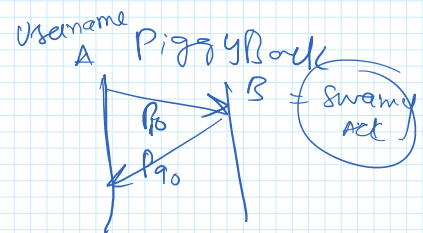 Username
A PiggyBack
B = Swamy
ACK
P10
P90